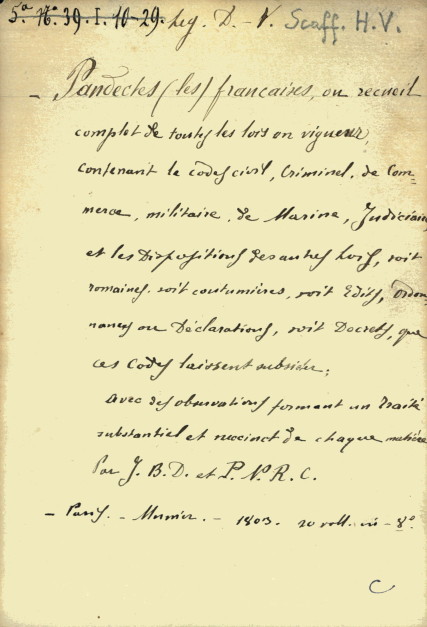 5ª 16ª 39. I. 10-29. Leg. D. - V. Scaff. H.V.
- Pandectes (les) francaises, ou recueil
complet de toutes les lois en vigueur,
contenant le codes civil, Criminel, de Com=
merce, militaire, de Marine, Judiciaire
et les Dispositions des autres Lois, soit
romaines, soit coutumières, soit Edits, Ordon
nances ou Déclarations, soit Decrets, que
ces Codes laissent subsister;
Avec des observations formant un Traité
substantiel et succinct de chaque matière
Par J. B. D. et P. N. R. C.
- Paris. - - 1803. 20 voll. in - 8°.
C